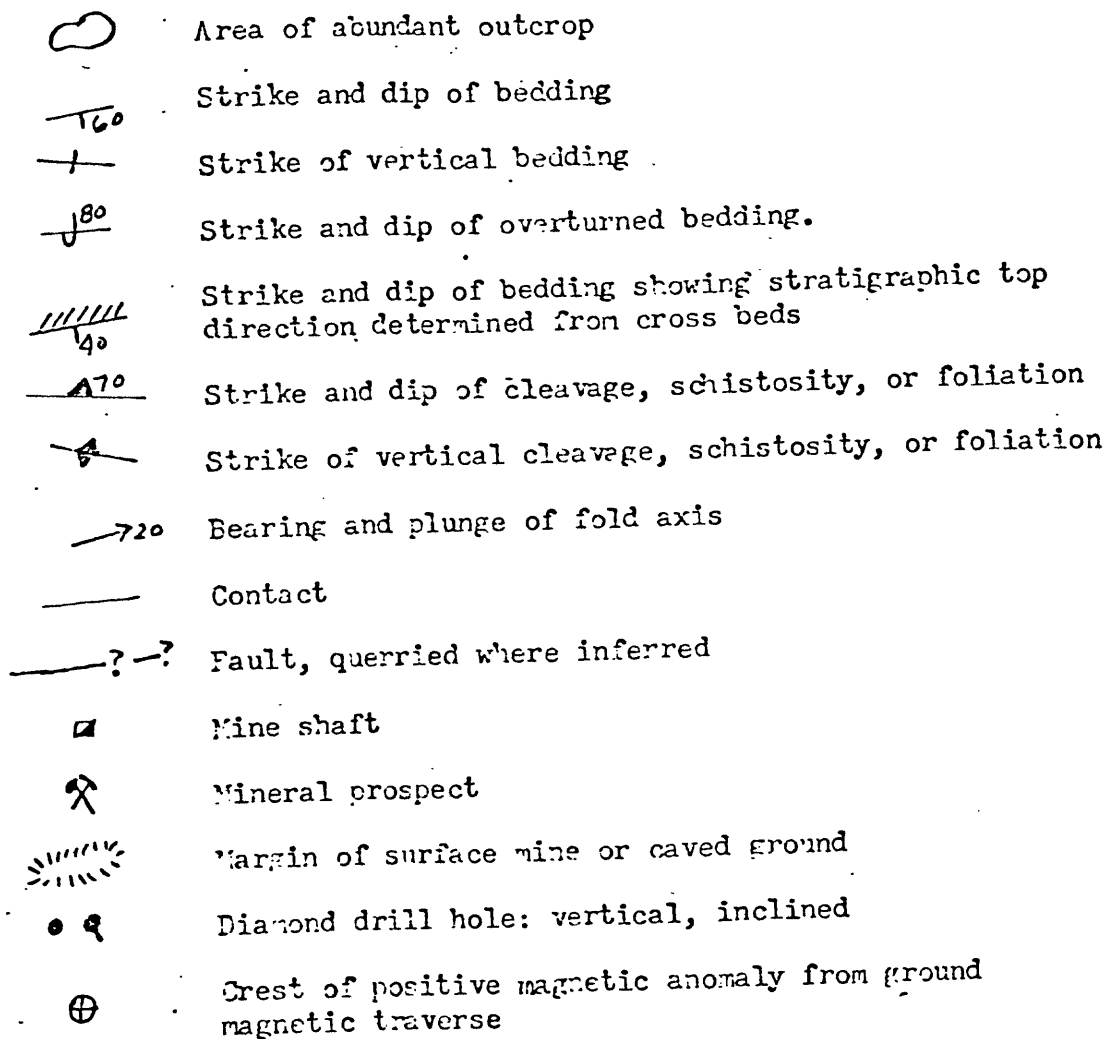 Area of abundant outcrop
60 Strike and dip of bedding
Strike of vertical bedding
80 Strike and dip of overturned bedding.
Strike and dip of bedding showing stratigraphic top
40 direction determined from cross beds
70 Strike and dip of cleavage, schistosity, or foliation
Strike of vertical cleavage, schistosity, or foliation
20 Bearing and plunge of fold axis
Contact
? ? Fault, querried where inferred
Mine shaft
Mineral prospect
Margin of surface mine or caved ground
Diamond drill hole: vertical, inclined
Crest of positive magnetic anomaly from ground
magnetic traverse